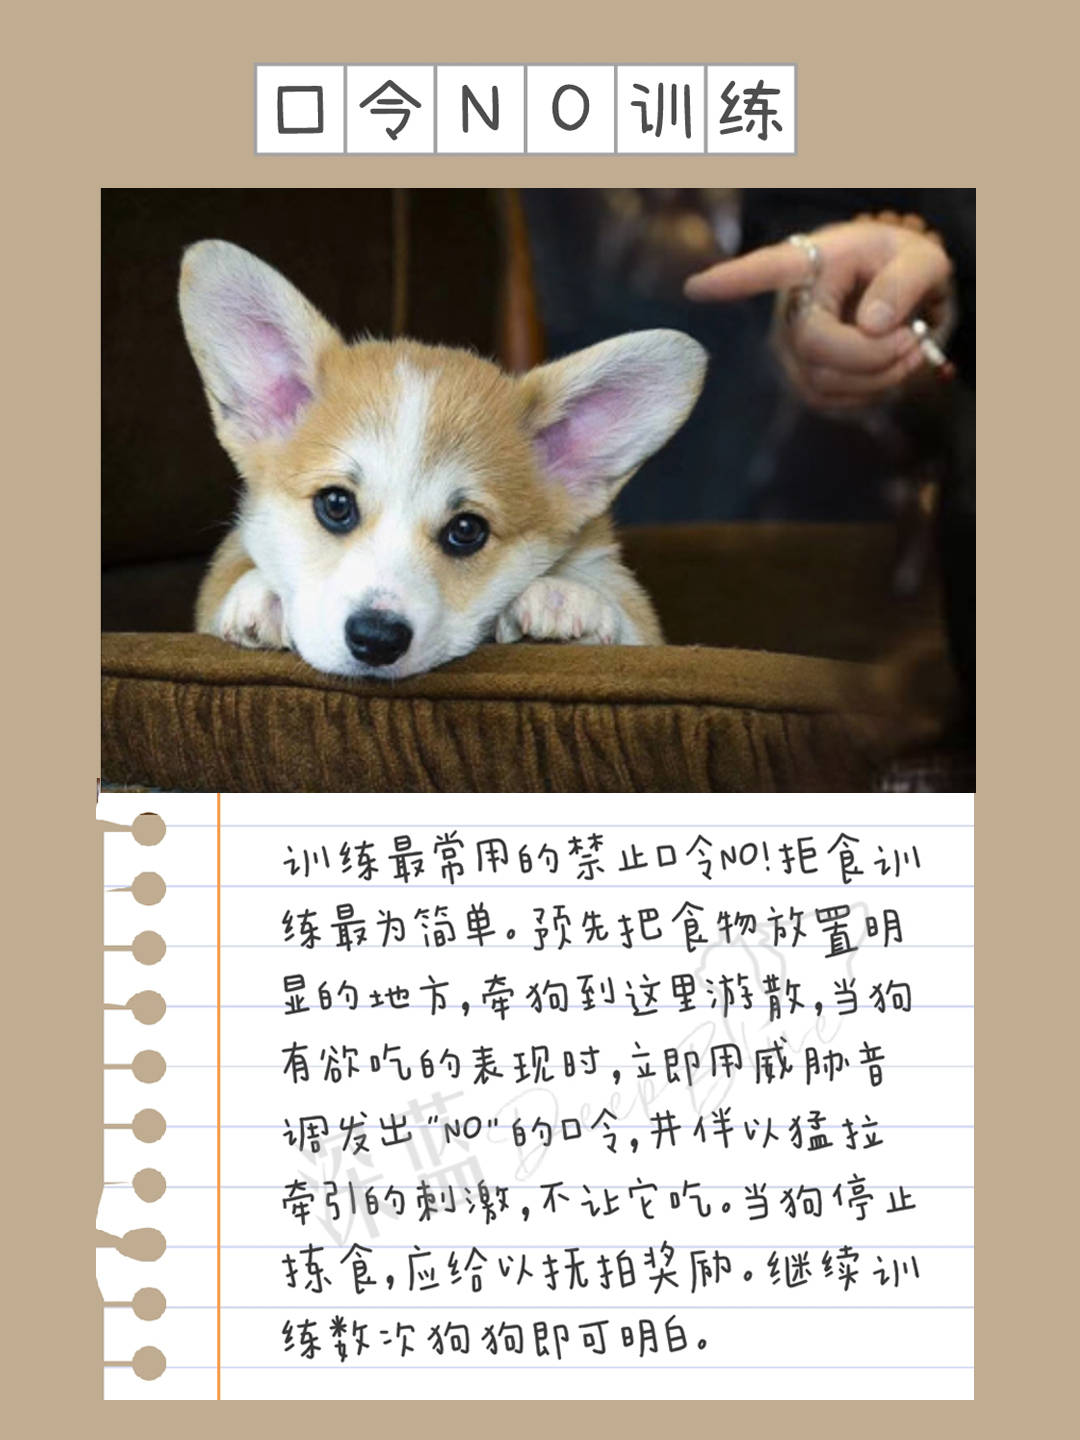 口令NO训练
训练最常用的禁止口令NO!拒食训
练最为简单。预先把食物放置明
显的地方,牵狗到这里游散,当狗
有欲吃的表现时,立即用威胁音
调发出“NO”的口令,并伴以猛拉
牵引的刺激,不让它吃。当狗停止
拣食,应给以抚拍奖励。继续训
练数次狗狗即可明白。
深蓝DeepBlue